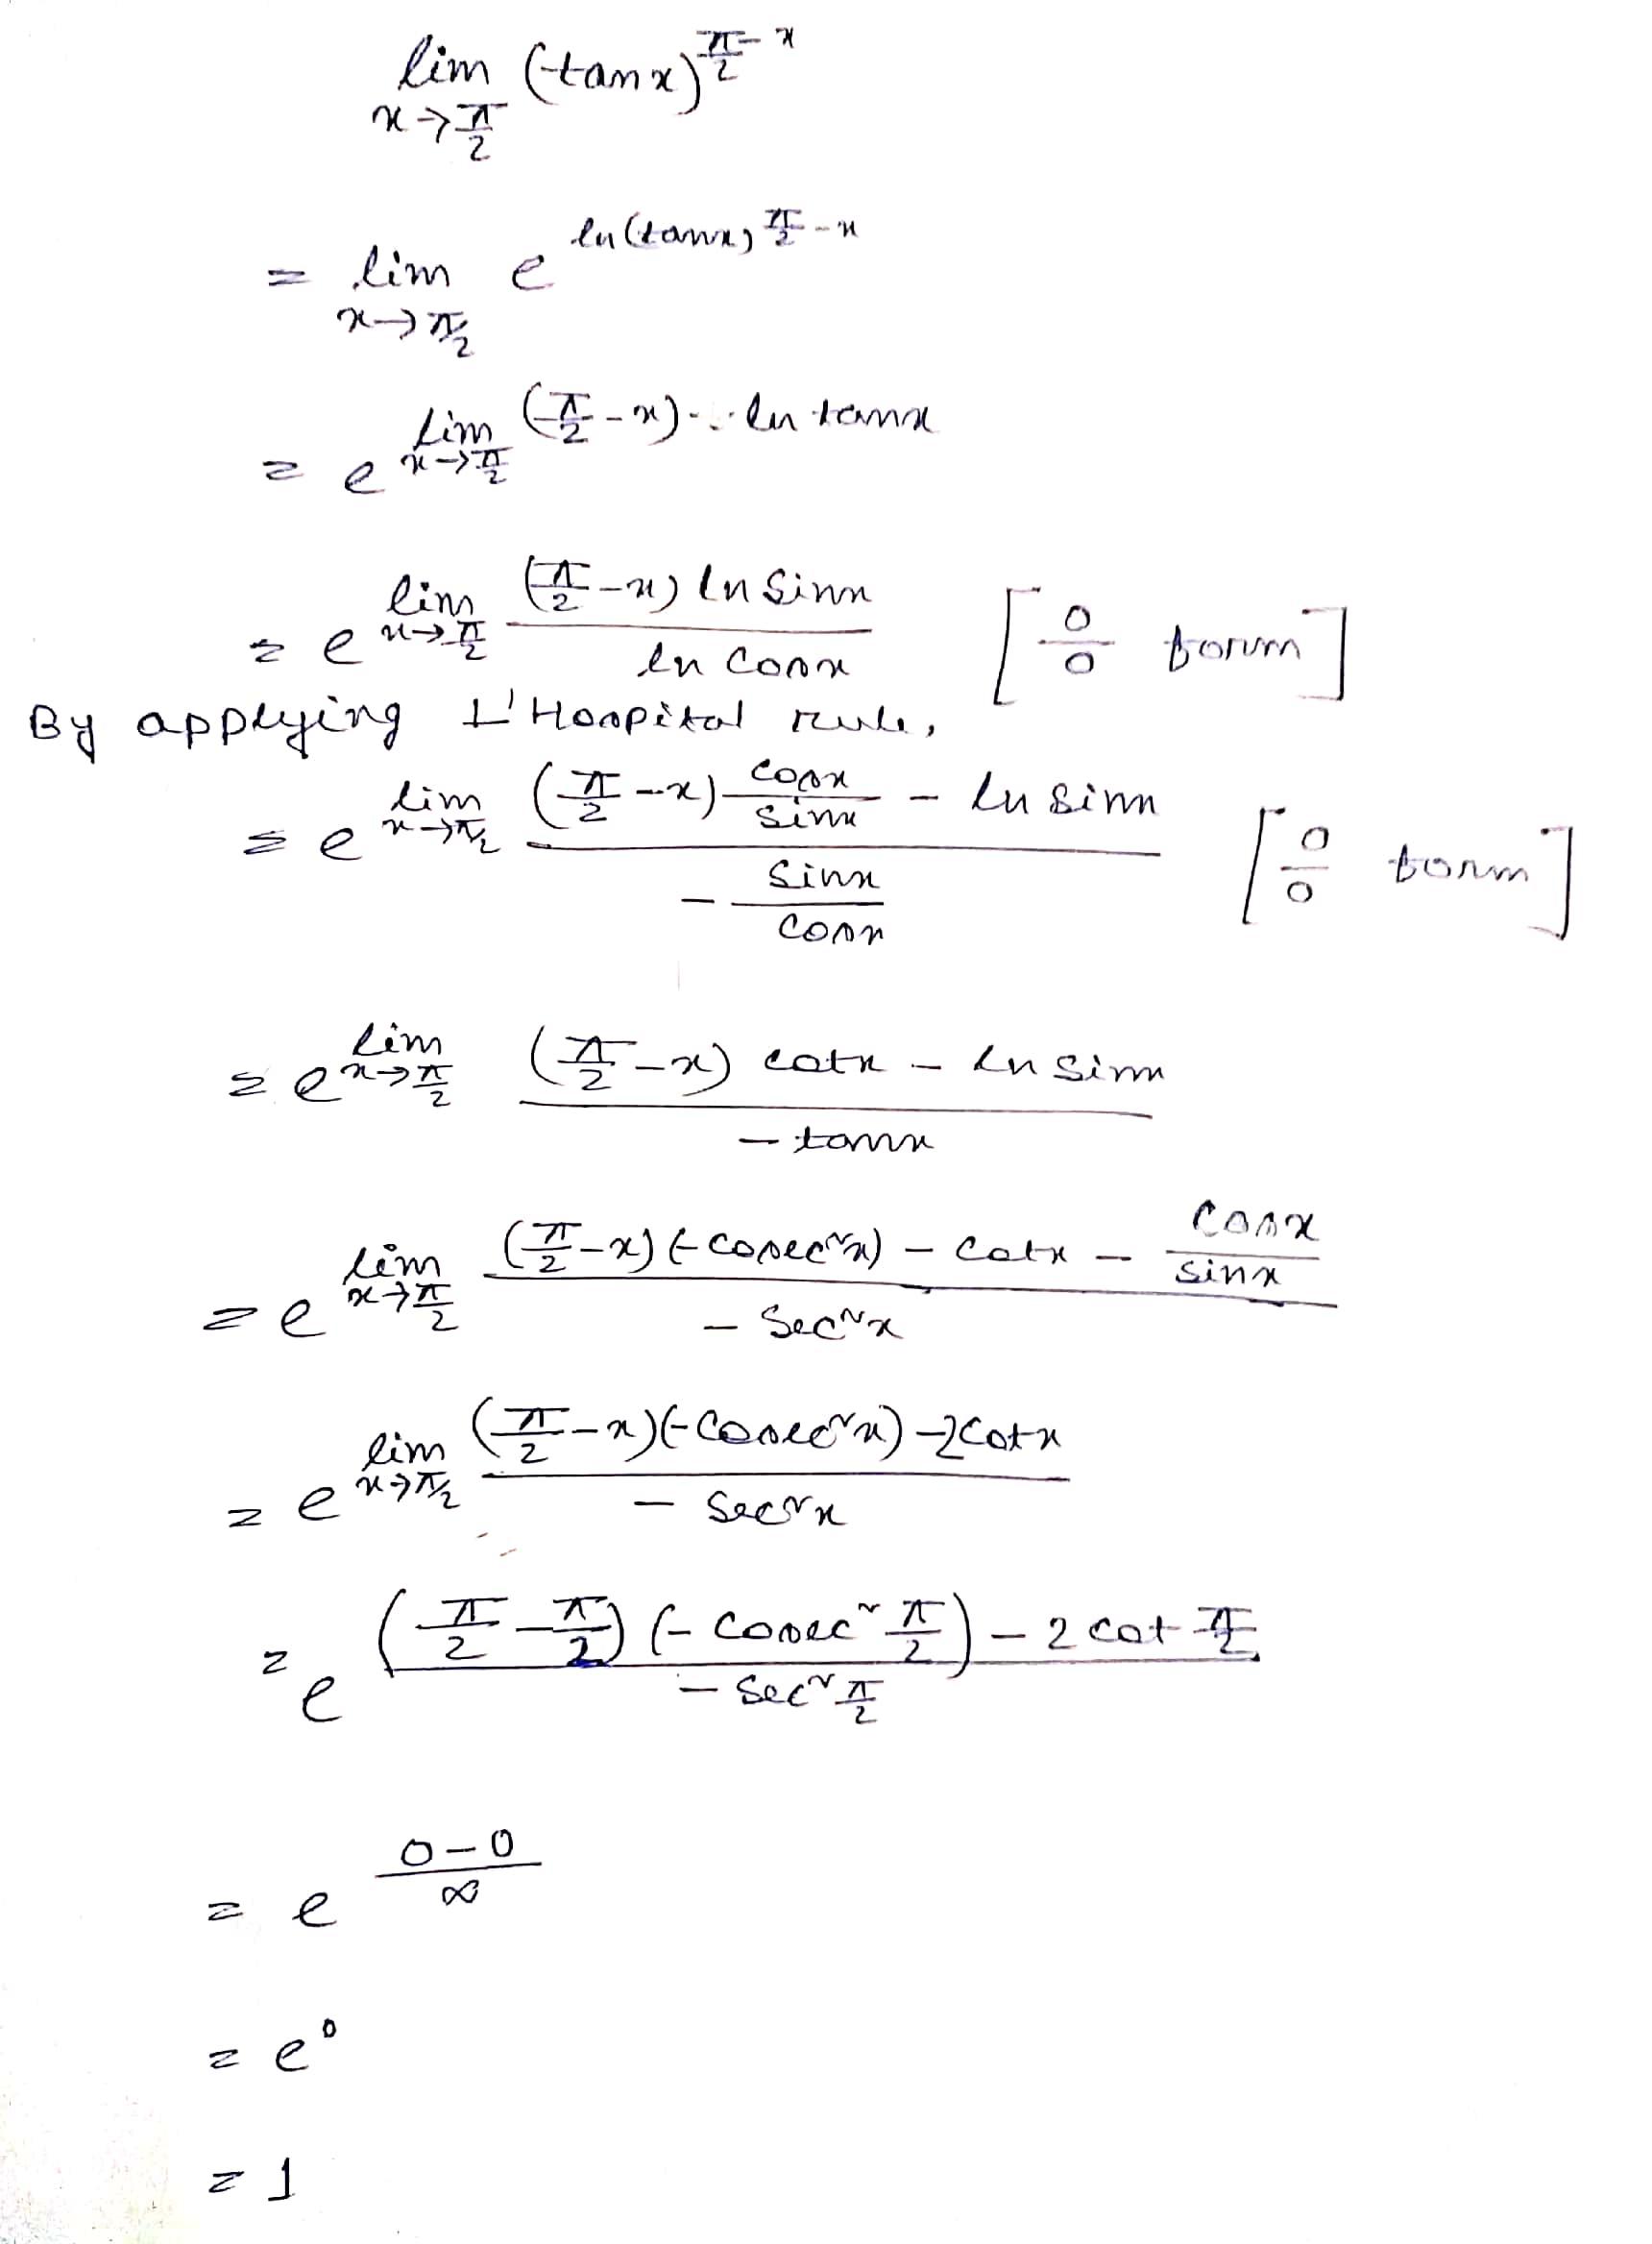 lim_{x→π/2} (tanx)^{π/2 - x}
= lim_{x→π/2} e^{ln(tanx)^{π/2 - x}}
= e^{lim_{x→π/2} (π/2 - x) · ln tanx}
= e^{lim_{x→π/2} \frac{(π/2 - x) ln sinx}{ln cosx}} [0/0 form]
By applying L'Hospital rule,
= e^{lim_{x→π/2} \frac{(π/2 - x) \frac{cosx}{sinx} - ln sinx}{-\frac{sinx}{cosx}}} [0/0 form]
= e^{lim_{x→π/2} \frac{(π/2 - x) cotx - ln sinx}{-tanx}}
= e^{lim_{x→π/2} \frac{(π/2 - x)(-cosec²x) - cotx - \frac{cosx}{sinx}}{-sec²x}}
= e^{lim_{x→π/2} \frac{(π/2 - x)(-cosec²x) - 2cotx}{-sec²x}}
= e^{\frac{(π/2 - π/2)(-cosec² π/2) - 2cot π/2}{-sec² π/2}}
= e^{\frac{0-0}{∞}}
= e^0
= 1